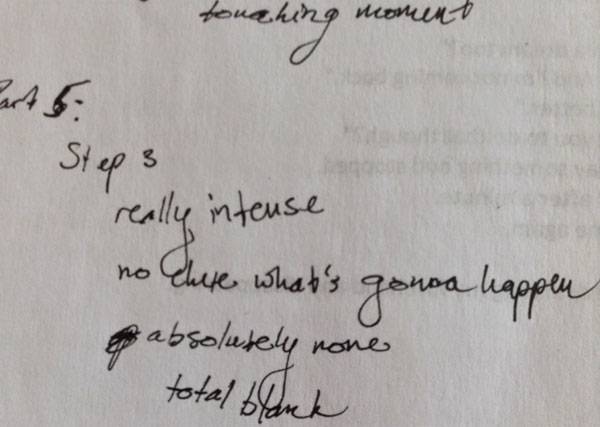 touching moment
Part 5:
Step 3
really intense
no clue what's gonna happen
absolutely none
total blank